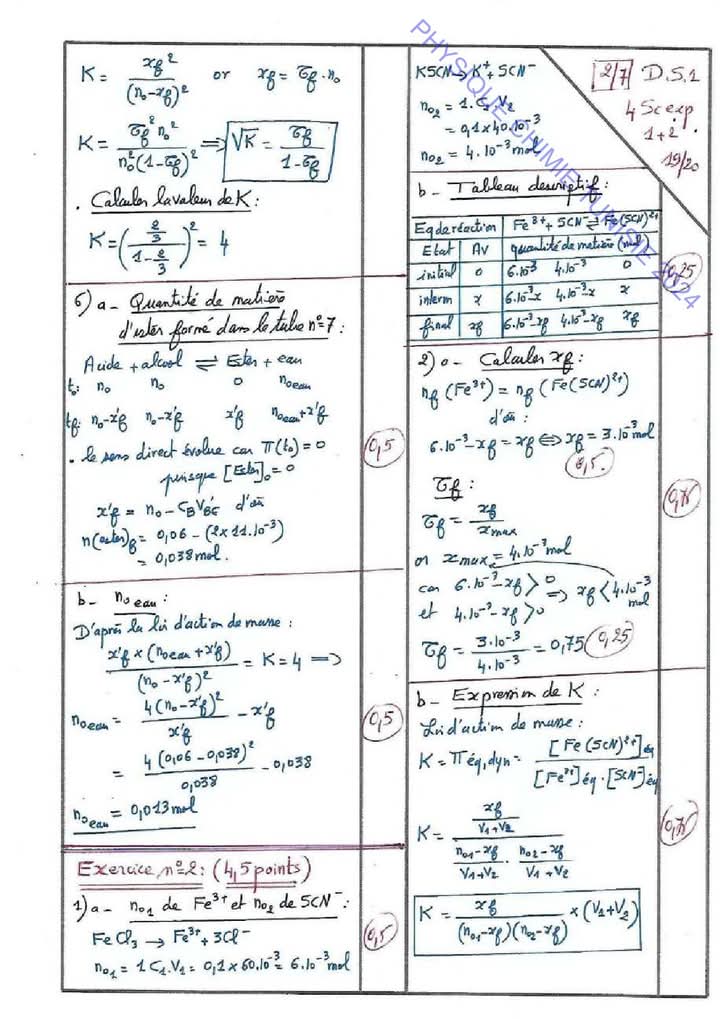 K = xf² / (n₀-xf)² or xf = τf·n₀
K = τf² n₀² / n₀²(1-τf)² ⟹ √K = τf / 1-τf
• Calculer la valeur de K :
K = ( 2/3 / 1-2/3 )² = 4
5) a - Quantité de matière
d'ester formé dans le tube n°7 :
Acide + alcool ⇌ Ester + eau
t₀: n₀ n₀ 0 n₀eau
tf: n₀-x'f n₀-x'f x'f n₀eau+x'f
• le sens direct évolue car Π(t₀) = 0
puisque [Ester]₀ = 0
x'f = n₀ - C_B V'_BE d'où
n(ester)f = 0,06 - (2×11.10⁻³)
= 0,038 mol.
0,5
b - n₀eau :
D'après la loi d'action de masse :
x'f × (n₀eau + x'f) / (n₀-x'f)² = K = 4 ⟹
n₀eau = 4(n₀-x'f)² / x'f - x'f
= 4(0,06-0,038)² / 0,038 - 0,038
n₀eau = 0,013 mol
0,5
Exercice n°2 : (4,5 points)
1) a - n₀₁ de Fe³⁺ et n₀₂ de SCN⁻ :
FeCl₃ → Fe³⁺ + 3Cl⁻
n₀₁ = 1 C₁.V₁ = 0,1 × 60.10⁻³ = 6.10⁻³ mol
0,5
KSCN → K⁺ + SCN⁻
n₀₂ = 1.C₂ V₂
= 0,1×40.10⁻³
n₀₂ = 4.10⁻³ mol
2/7 D.S.1
4 Sc exp
1+2
19/20
b - Tableau descriptif :
Eq de réaction Fe³⁺ + SCN⁻ ⇌ Fe(SCN)²⁺
Etat Av quantité de matière (mol)
initial 0 6.10⁻³ 4.10⁻³ 0
interm x 6.10⁻³-x 4.10⁻³-x x
final xf 6.10⁻³-xf 4.10⁻³-xf xf
0,25
2) a - Calculer xf :
nf (Fe³⁺) = nf (Fe(SCN)²⁺)
d'où :
6.10⁻³-xf = xf ⟺ xf = 3.10⁻³ mol
0,5.
τf :
τf = xf / xmax
or xmax = 4.10⁻³ mol
car 6.10⁻³-xf > 0
et 4.10⁻³-xf > 0 ⟹ xf < 4.10⁻³ mol
τf = 3.10⁻³ / 4.10⁻³ = 0,75 0,25
0,75
b - Expression de K :
Loi d'action de masse :
K = Π éq,dyn = [Fe(SCN)²⁺]éq / [Fe³⁺]éq . [SCN⁻]éq
K = xf/V₁+V₂ / n₀₁-xf/V₁+V₂ . n₀₂-xf/V₁+V₂
K = xf / (n₀₁-xf)(n₀₂-xf) × (V₁+V₂)
0,75
PHYSIQUE CHIMIE TUNISIE 2024